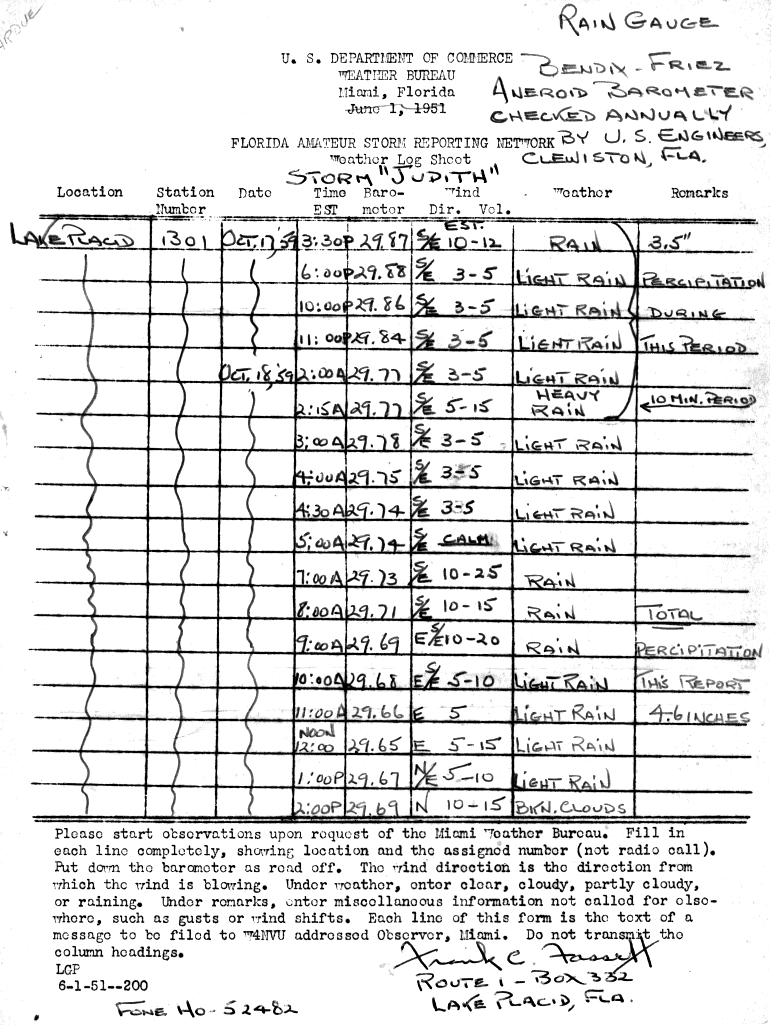 RAIN GAUGE
U. S. DEPARTMENT OF COMMERCE
WEATHER BUREAU
Miami, Florida
June 1, 1951
BENDIX-FRIEZ
ANEROID BAROMETER
CHECKED ANNUALLY
BY U.S. ENGINEERS,
CLEWISTON, FLA.
FLORIDA AMATEUR STORM REPORTING NETWORK
Weather Log Sheet
STORM "JUDITH"
Location Station Number Date Time EST Baro-meter Wind Dir. Vel. Weather Remarks
EST.
LAKE PLACID 1301 OCT. 17,'59 3:30P 29.87 S/E 10-12 RAIN 3.5"
6:00P 29.88 S/E 3-5 LIGHT RAIN PERCIPITATION
10:00P 29.86 S/E 3-5 LIGHT RAIN DURING
11:00P 29.84 S/E 3-5 LIGHT RAIN THIS PERIOD
OCT. 18,'59 2:00A 29.77 S/E 3-5 LIGHT RAIN
2:15A 29.77 S/E 5-15 HEAVY RAIN 10 MIN. PERIOD
3:00A 29.78 S/E 3-5 LIGHT RAIN
4:00A 29.75 S/E 3-5 LIGHT RAIN
4:30A 29.74 S/E 3-5 LIGHT RAIN
5:00A 29.74 S/E CALM LIGHT RAIN
7:00A 29.73 S/E 10-25 RAIN
8:00A 29.71 S/E 10-15 RAIN TOTAL
9:00A 29.69 E S/E 10-20 RAIN PERCIPITATION
10:00A 29.68 E S/E 5-10 LIGHT RAIN THIS REPORT
11:00A 29.66 E 5 LIGHT RAIN 4.6 INCHES
NOON 12:00 29.65 E 5-15 LIGHT RAIN
1:00P 29.67 N/E 5-10 LIGHT RAIN
2:00P 29.69 N 10-15 BKN. CLOUDS
Please start observations upon request of the Miami Weather Bureau. Fill in
each line completely, showing location and the assigned number (not radio call).
Put down the barometer as read off. The wind direction is the direction from
which the wind is blowing. Under weather, enter clear, cloudy, partly cloudy,
or raining. Under remarks, enter miscellaneous information not called for else-
where, such as gusts or wind shifts. Each line of this form is the text of a
message to be filed to W4NVU addressed Observer, Miami. Do not transmit the
column headings.
LGP
6-1-51--200
Frank C. Fassett
ROUTE 1 - BOX 332
LAKE PLACID, FLA.
FONE HO-52482